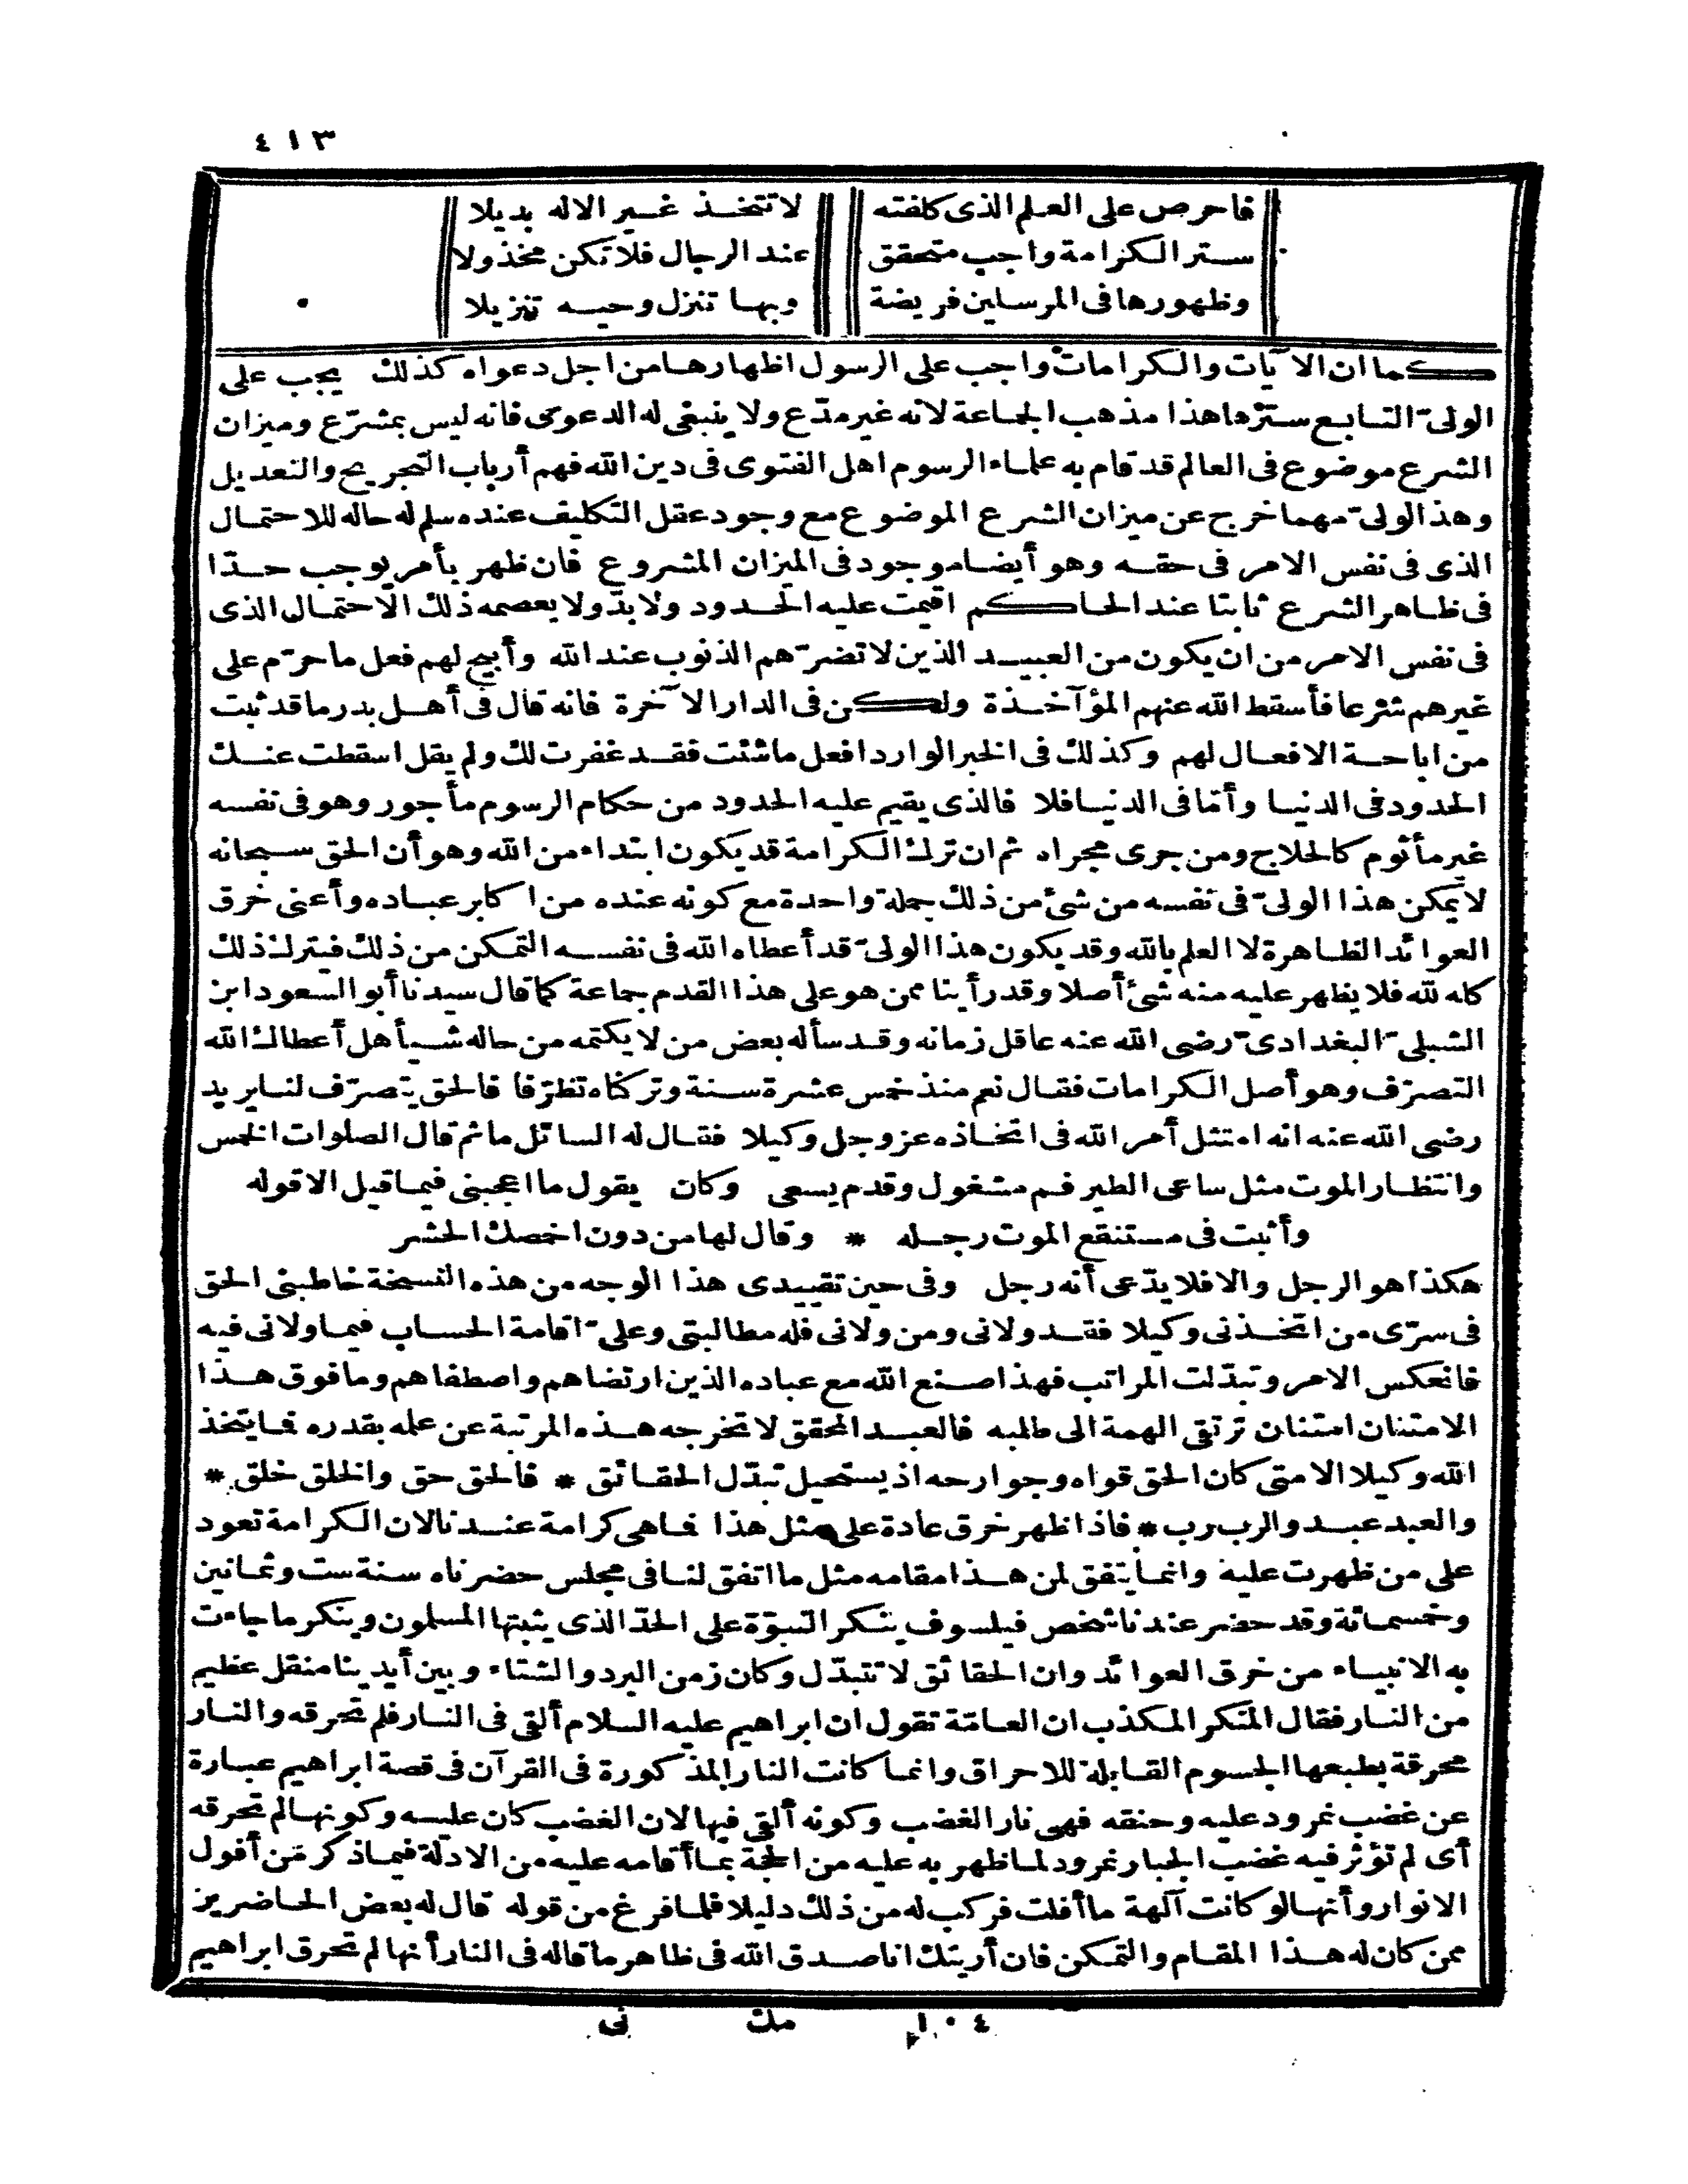 ٤١٣
فاحرص على العلم الذى كلفته لا تتخذ غير الاله بديلا
ستر الكرامة واجب متحقق عند الرجال فلا تكن مخذولا
وظهورها فى المرسلين فريضة وبها تنزل وحيه تنزيلا
كما ان الآيات والكرامات واجب على الرسول اظهارها من اجل دعواه كذلك يجب على
الولىّ التابع سترها هذا مذهب الجماعة لانه غير مدّع ولا ينبغى له الدعوى فانه ليس بمشرّع وميزان
الشرع موضوع فى العالم قد قام به علماء الرسوم اهل الفتوى فى دين الله فهم أرباب التجريح والتعديل
وهذا الولىّ مهما خرج عن ميزان الشرع الموضوع مع وجود عقل التكليف عنده سلم له حاله للاحتمال
الذى فى نفس الامر فى حقه وهو أيضا موجود فى الميزان المشروع فان ظهر بأمر يوجب حدّا
فى ظاهر الشرع ثابتا عند الحاكم اقيمت عليه الحدود ولا بدّ ولا يعصمه ذلك الاحتمال الذى
فى نفس الامر من ان يكون من العبيد الذين لا تضرّهم الذنوب عند الله وأبيح لهم فعل ما حرّم على
غيرهم شرعا فأسقط الله عنهم المؤآخذة ولكن فى الدار الآخرة فانه قال فى أهل بدر ما قد ثبت
من اباحة الافعال لهم وكذلك فى الخبر الوارد افعل ما شئت فقد غفرت لك ولم يقل اسقطت عنك
الحدود فى الدنيا وأمّا فى الدنيا فلا فالذى يقيم عليه الحدود من حكام الرسوم مأجور وهو فى نفسه
غير مأثوم كالحلاج ومن جرى مجراه ثم ان ترك الكرامة قد يكون ابتداء من الله وهو أن الحق سبحانه
لا يمكن هذا الولىّ فى نفسه من شئ من ذلك جملة واحدة مع كونه عنده من اكابر عباده وأعنى خرق
العوائد الظاهرة لا العلم بالله وقد يكون هذا الولىّ قد أعطاه الله فى نفسه التمكن من ذلك فيترك ذلك
كله لله فلا يظهر عليه منه شئ أصلا وقد رأينا ممن هو على هذا القدم جماعة كما قال سيدنا أبو السعود ابن
الشبلىّ البغدادىّ رضى الله عنه عاقل زمانه وقد سأله بعض من لا يكتمه من حاله شيأ هل أعطاك الله
التصرّف وهو أصل الكرامات فقال نعم منذ خمس عشرة سنة وتركناه تظرّفا فالحق يتصرّف لنا يريد
رضى الله عنه انه امتثل أمر الله فى اتخاذه عز وجل وكيلا فقال له السائل ما ثم قال الصلوات الخمس
وانتظار الموت مثل ساعى الطير فم مشغول وقدم يسعى وكان يقول ما اعجبنى فيما قيل الا قوله
وأثبت فى مستنقع الموت رجله * وقال لها من دون اخمصك الحشر
هكذا هو الرجل والا فلا يدّعى أنه رجل وفى حين تقييدى هذا الوجه من هذه النسخة خاطبنى الحق
فى سرّى من اتخذنى وكيلا فقد ولانى ومن ولانى فله مطالبتى وعلىّ اقامة الحساب فيما ولانى فيه
فانعكس الامر وتبدّلت المراتب فهذا صنع الله مع عباده الذين ارتضاهم واصطفاهم وما فوق هذا
الامتنان امتنان ترتقى الهمة الى طلبه فالعبد المحقق لا تخرجه هذه المرتبة عن علمه بقدره فما يتخذ
الله وكيلا الا متى كان الحق قواه وجوارحه اذ يستحيل تبدّل الحقائق * فالحق حق والخلق خلق *
والعبد عبد والرب رب * فاذا ظهر خرق عادة على مثل هذا فما هى كرامة عندنا لان الكرامة تعود
على من ظهرت عليه وانما يتفق لمن هذا مقامه مثل ما اتفق لنا فى مجلس حضرناه سنة ست وثمانين
وخمسمائة وقد حضر عندنا شخص فيلسوف ينكر النبوّة على الحدّ الذى يثبتها المسلمون وينكر ما جاءت
به الانبياء من خرق العوائد وان الحقائق لا تتبدّل وكان زمن البرد والشتاء وبين أيدينا منقل عظيم
من النار فقال المنكر المكذب ان العامّة تقول ان ابراهيم عليه السلام ألقى فى النار فلم تحرقه والنار
محرقة بطبعها الجسوم القابلة للاحراق وانما كانت النار المذكورة فى القرآن فى قصة ابراهيم عبارة
عن غضب نمرود عليه وحنقه فهى نار الغضب وكونه ألقى فيها لان الغضب كان عليه وكونها لم تحرقه
أى لم تؤثر فيه غضب الجبار نمرود لما ظهر به عليه من الحجة بما أقامه عليه من الادلّة فيما ذكر من أفول
الانوار وأنها لو كانت آلهة ما أفلت فركب له من ذلك دليلا فلما فرغ من قوله قال له بعض الحاضرين
ممن كان له هذا المقام والتمكن فان أريتك انا صدق الله فى ظاهر ما قاله فى النار أنها لم تحرق ابراهيم
١٠٤ مك نى